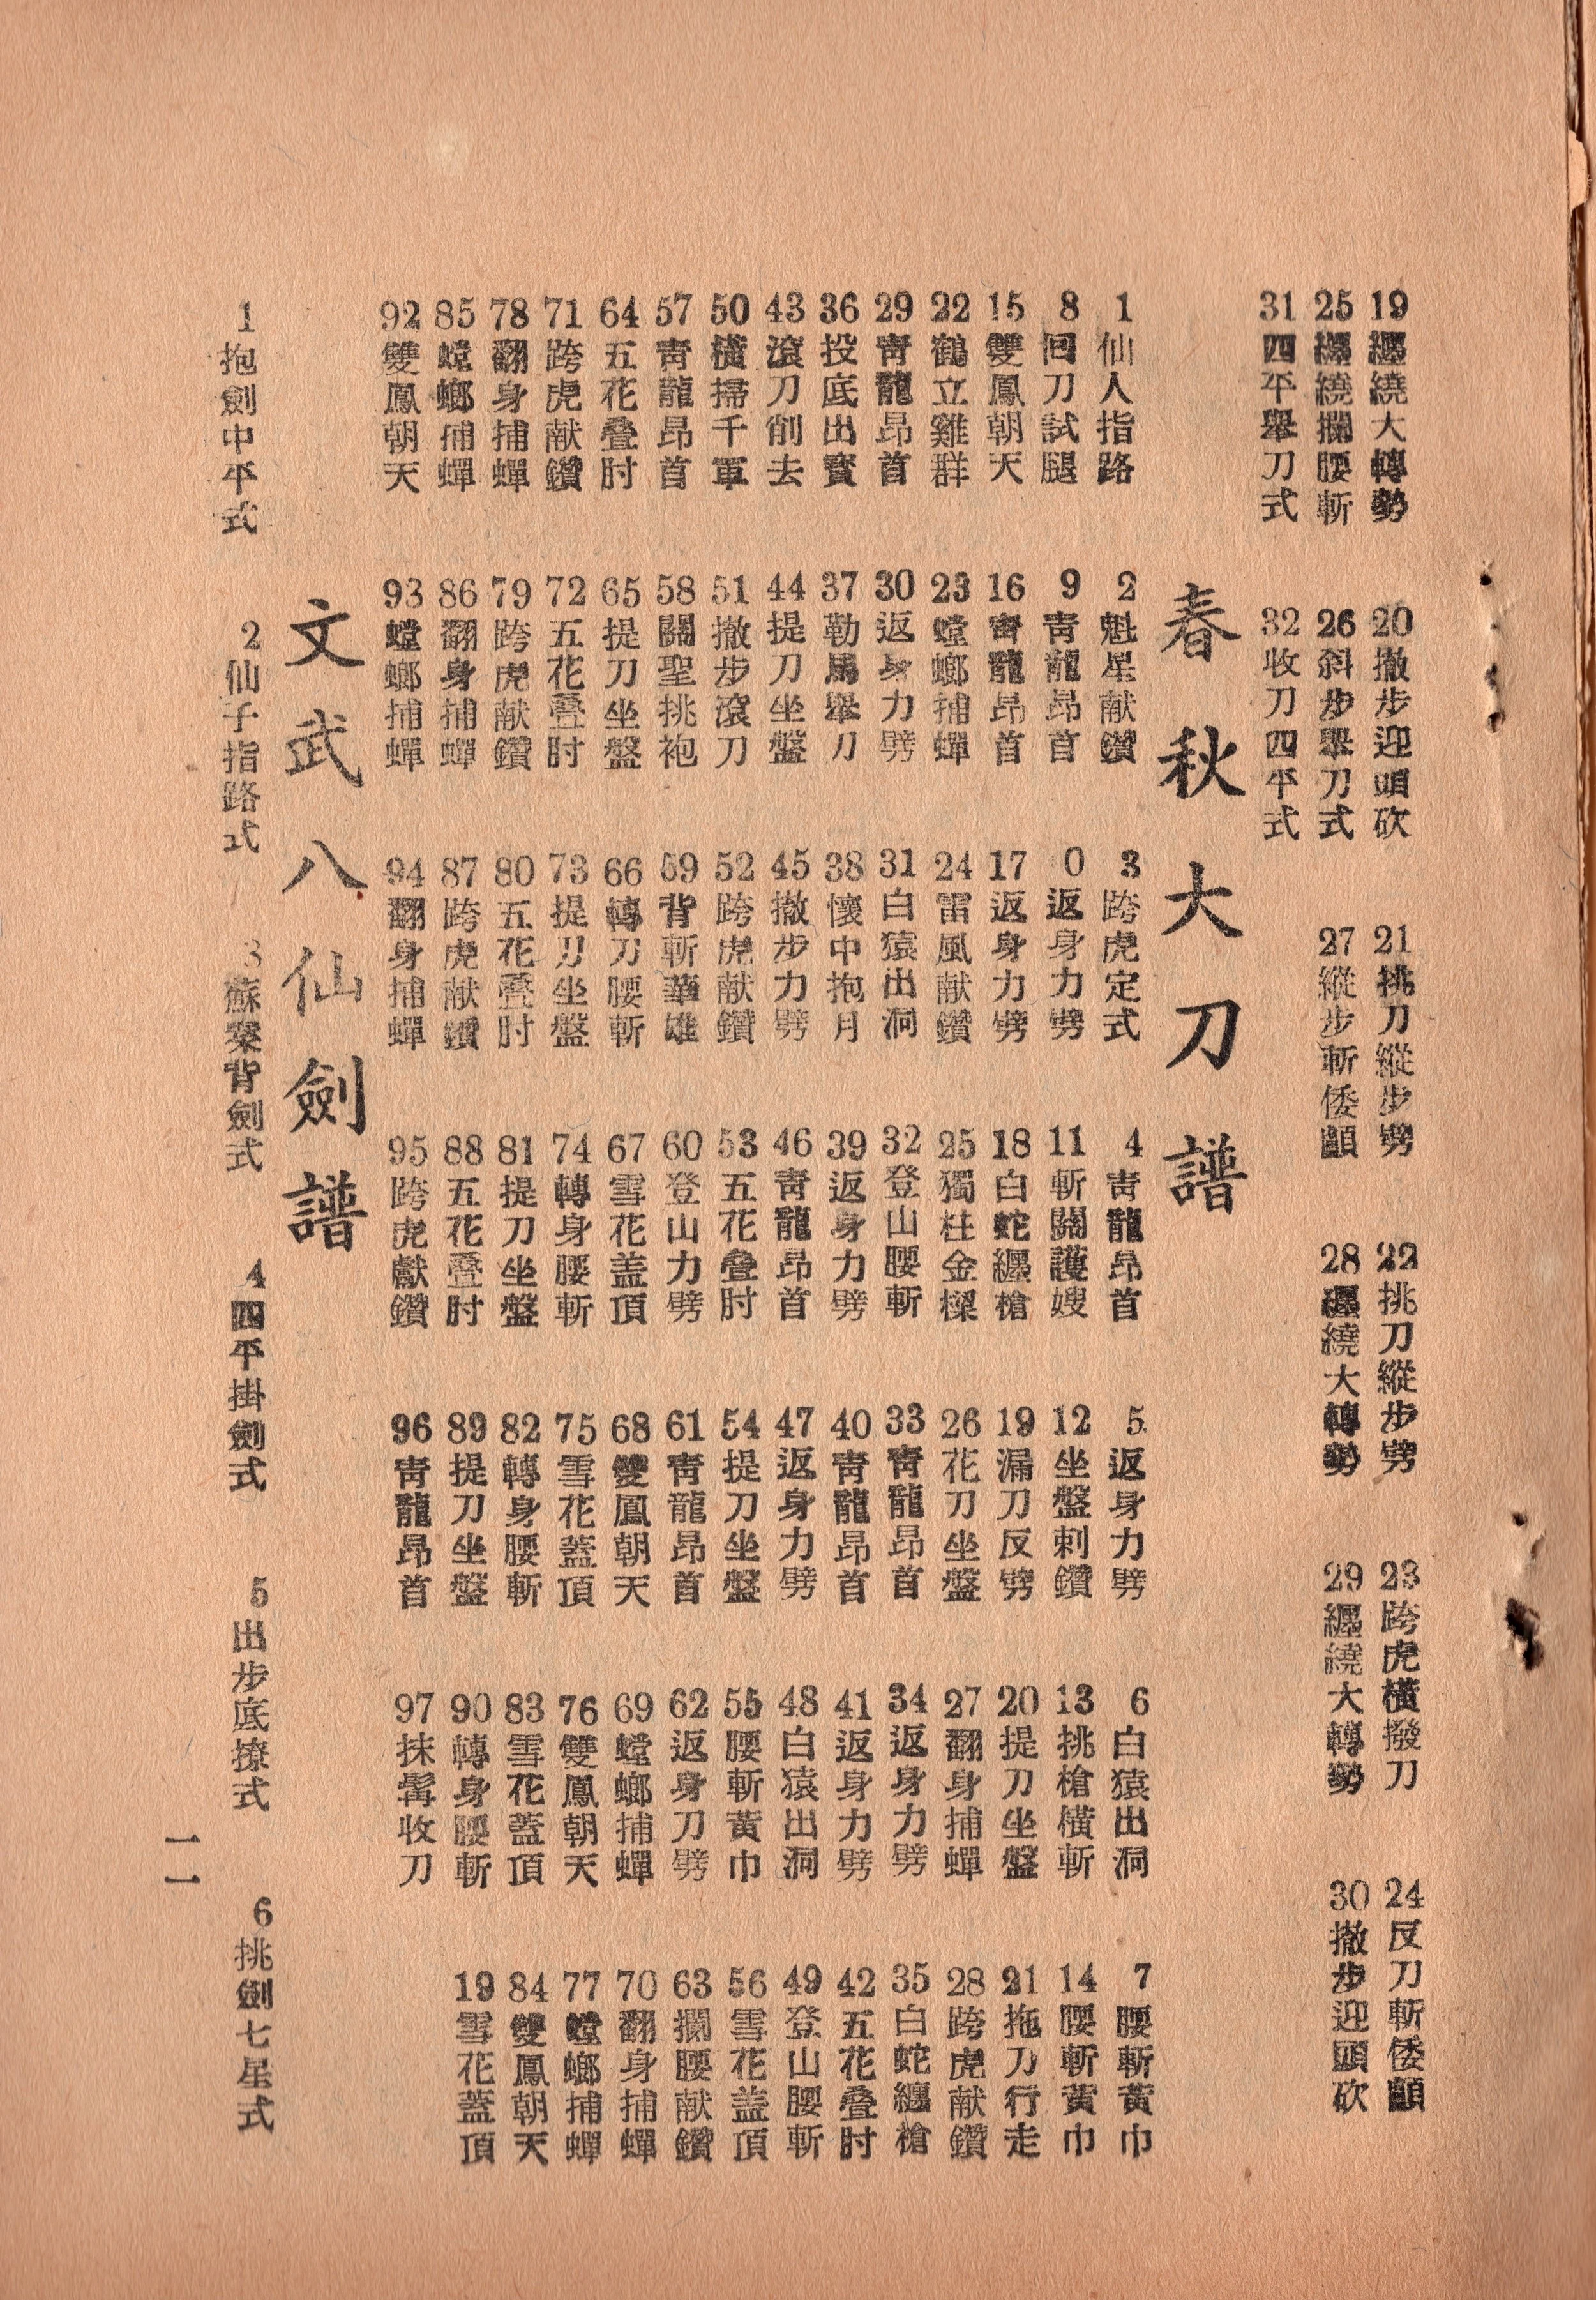 19纒繞大轉勢 20撤步迎頭砍 21挑刀縱步劈 22挑刀縱步劈 23跨虎橫撥刀 24反刀斬倭顱
25纒繞攔腰斬 26斜步舉刀式 27縱步斬倭顱 28纒繞大轉勢 29纒繞大轉勢 30撤步迎頭砍
31四平舉刀式 32收刀四平式
春秋大刀譜
1仙人指路 2魁星献鑽 3跨虎定式 4靑龍昂首 5返身力劈 6白猿出洞 7腰斬黃巾
8回刀試腿 9靑龍昂首 0返身力劈 11斬關護嫂 12坐盤刺鑽 13挑槍橫斬 14腰斬黃巾
15雙鳳朝天 16靑龍昂首 17返身力劈 18白蛇纒槍 19漏刀反劈 20提刀坐盤 21拖刀行走
22鶴立雞群 23螳螂捕蟬 24雷風献鑽 25獨柱金樑 26花刀坐盤 27翻身捕蟬 28跨虎献鑽
29靑龍昂首 30返身力劈 31白猿出洞 32登山腰斬 33靑龍昂首 34返身力劈 35白蛇纒槍
36投底出寳 37勒馬舉刀 38懷中抱月 39返身力劈 40靑龍昂首 41返身力劈 42五花叠肘
43滾刀削去 44提刀坐盤 45撤步力劈 46靑龍昂首 47返身力劈 48白猿出洞 49登山腰斬
50橫掃千軍 51撤步滾刀 52跨虎献鑽 53五花叠肘 54提刀坐盤 55腰斬黃巾 56雪花盖頂
57靑龍昂首 58關聖挑袍 59背斬華雄 60登山力劈 61靑龍昂首 62返身刀劈 63攔腰献鑽
64五花叠肘 65提刀坐盤 66轉刀腰斬 67雪花盖頂 68雙鳳朝天 69螳螂捕蟬 70翻身捕蟬
71跨虎献鑽 72五花叠肘 73提刀坐盤 74轉身腰斬 75雪花蓋頂 76雙鳳朝天 77螳螂捕蟬
78翻身捕蟬 79跨虎献鑽 80五花叠肘 81提刀坐盤 82轉身腰斬 83雪花蓋頂 84雙鳳朝天
85螳螂捕蟬 86翻身捕蟬 87跨虎献鑽 88五花叠肘 89提刀坐盤 90轉身腰斬 19雪花蓋頂
92雙鳳朝天 93螳螂捕蟬 94翻身捕蟬 95跨虎獻鑽 96靑龍昂首 97抹髯收刀
文武八仙劍譜
1抱劍中平式 2仙子指路式 3蘇秦背劍式 4四平掛劍式 5出步底撩式 6挑劍七星式
一一